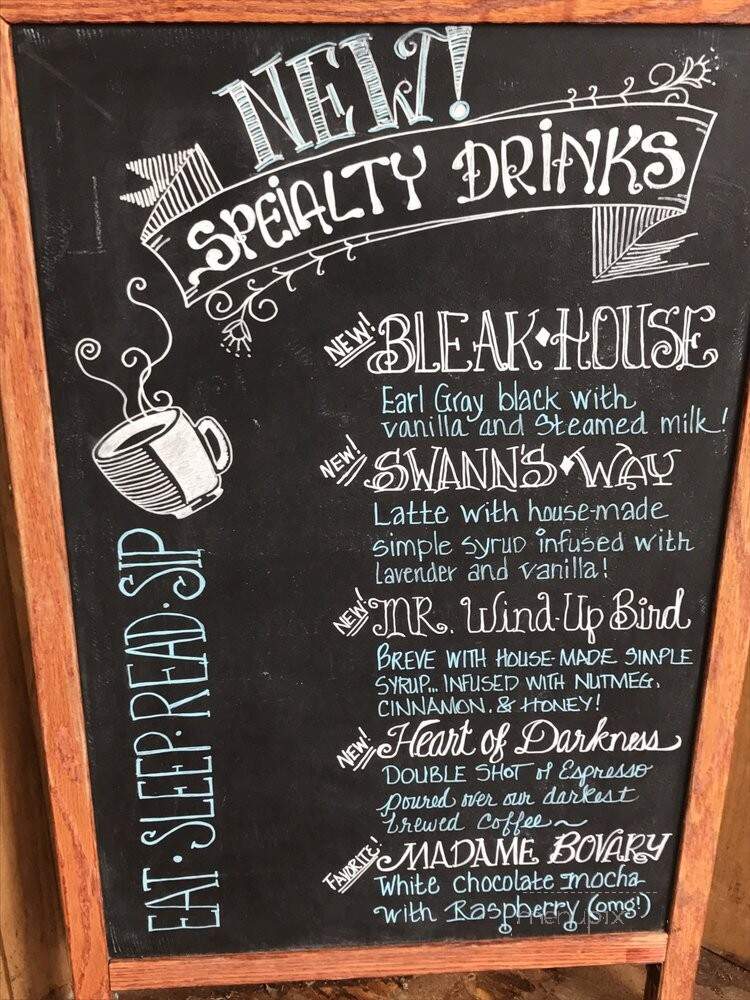 NEW!
SPEIALTY DRINKS
NEW! BLEAK HOUSE
Earl Gray black with
vanilla and Steamed milk!
NEW! SWANN'S WAY
Latte with house-made
simple syrup infused with
lavender and vanilla!
NEW! MR. Wind-Up Bird
BREVE WITH HOUSE-MADE SIMPLE
SYRUP... INFUSED WITH NUTMEG,
CINNAMON, & HONEY!
NEW! Heart of Darkness
DOUBLE SHOT of Espresso
poured over our darkest
brewed coffee~
FAVORITE! MADAME BOVARY
White Chocolate mocha
with Raspberry (omg!)
EAT·SLEEP·READ·SIP
menupix